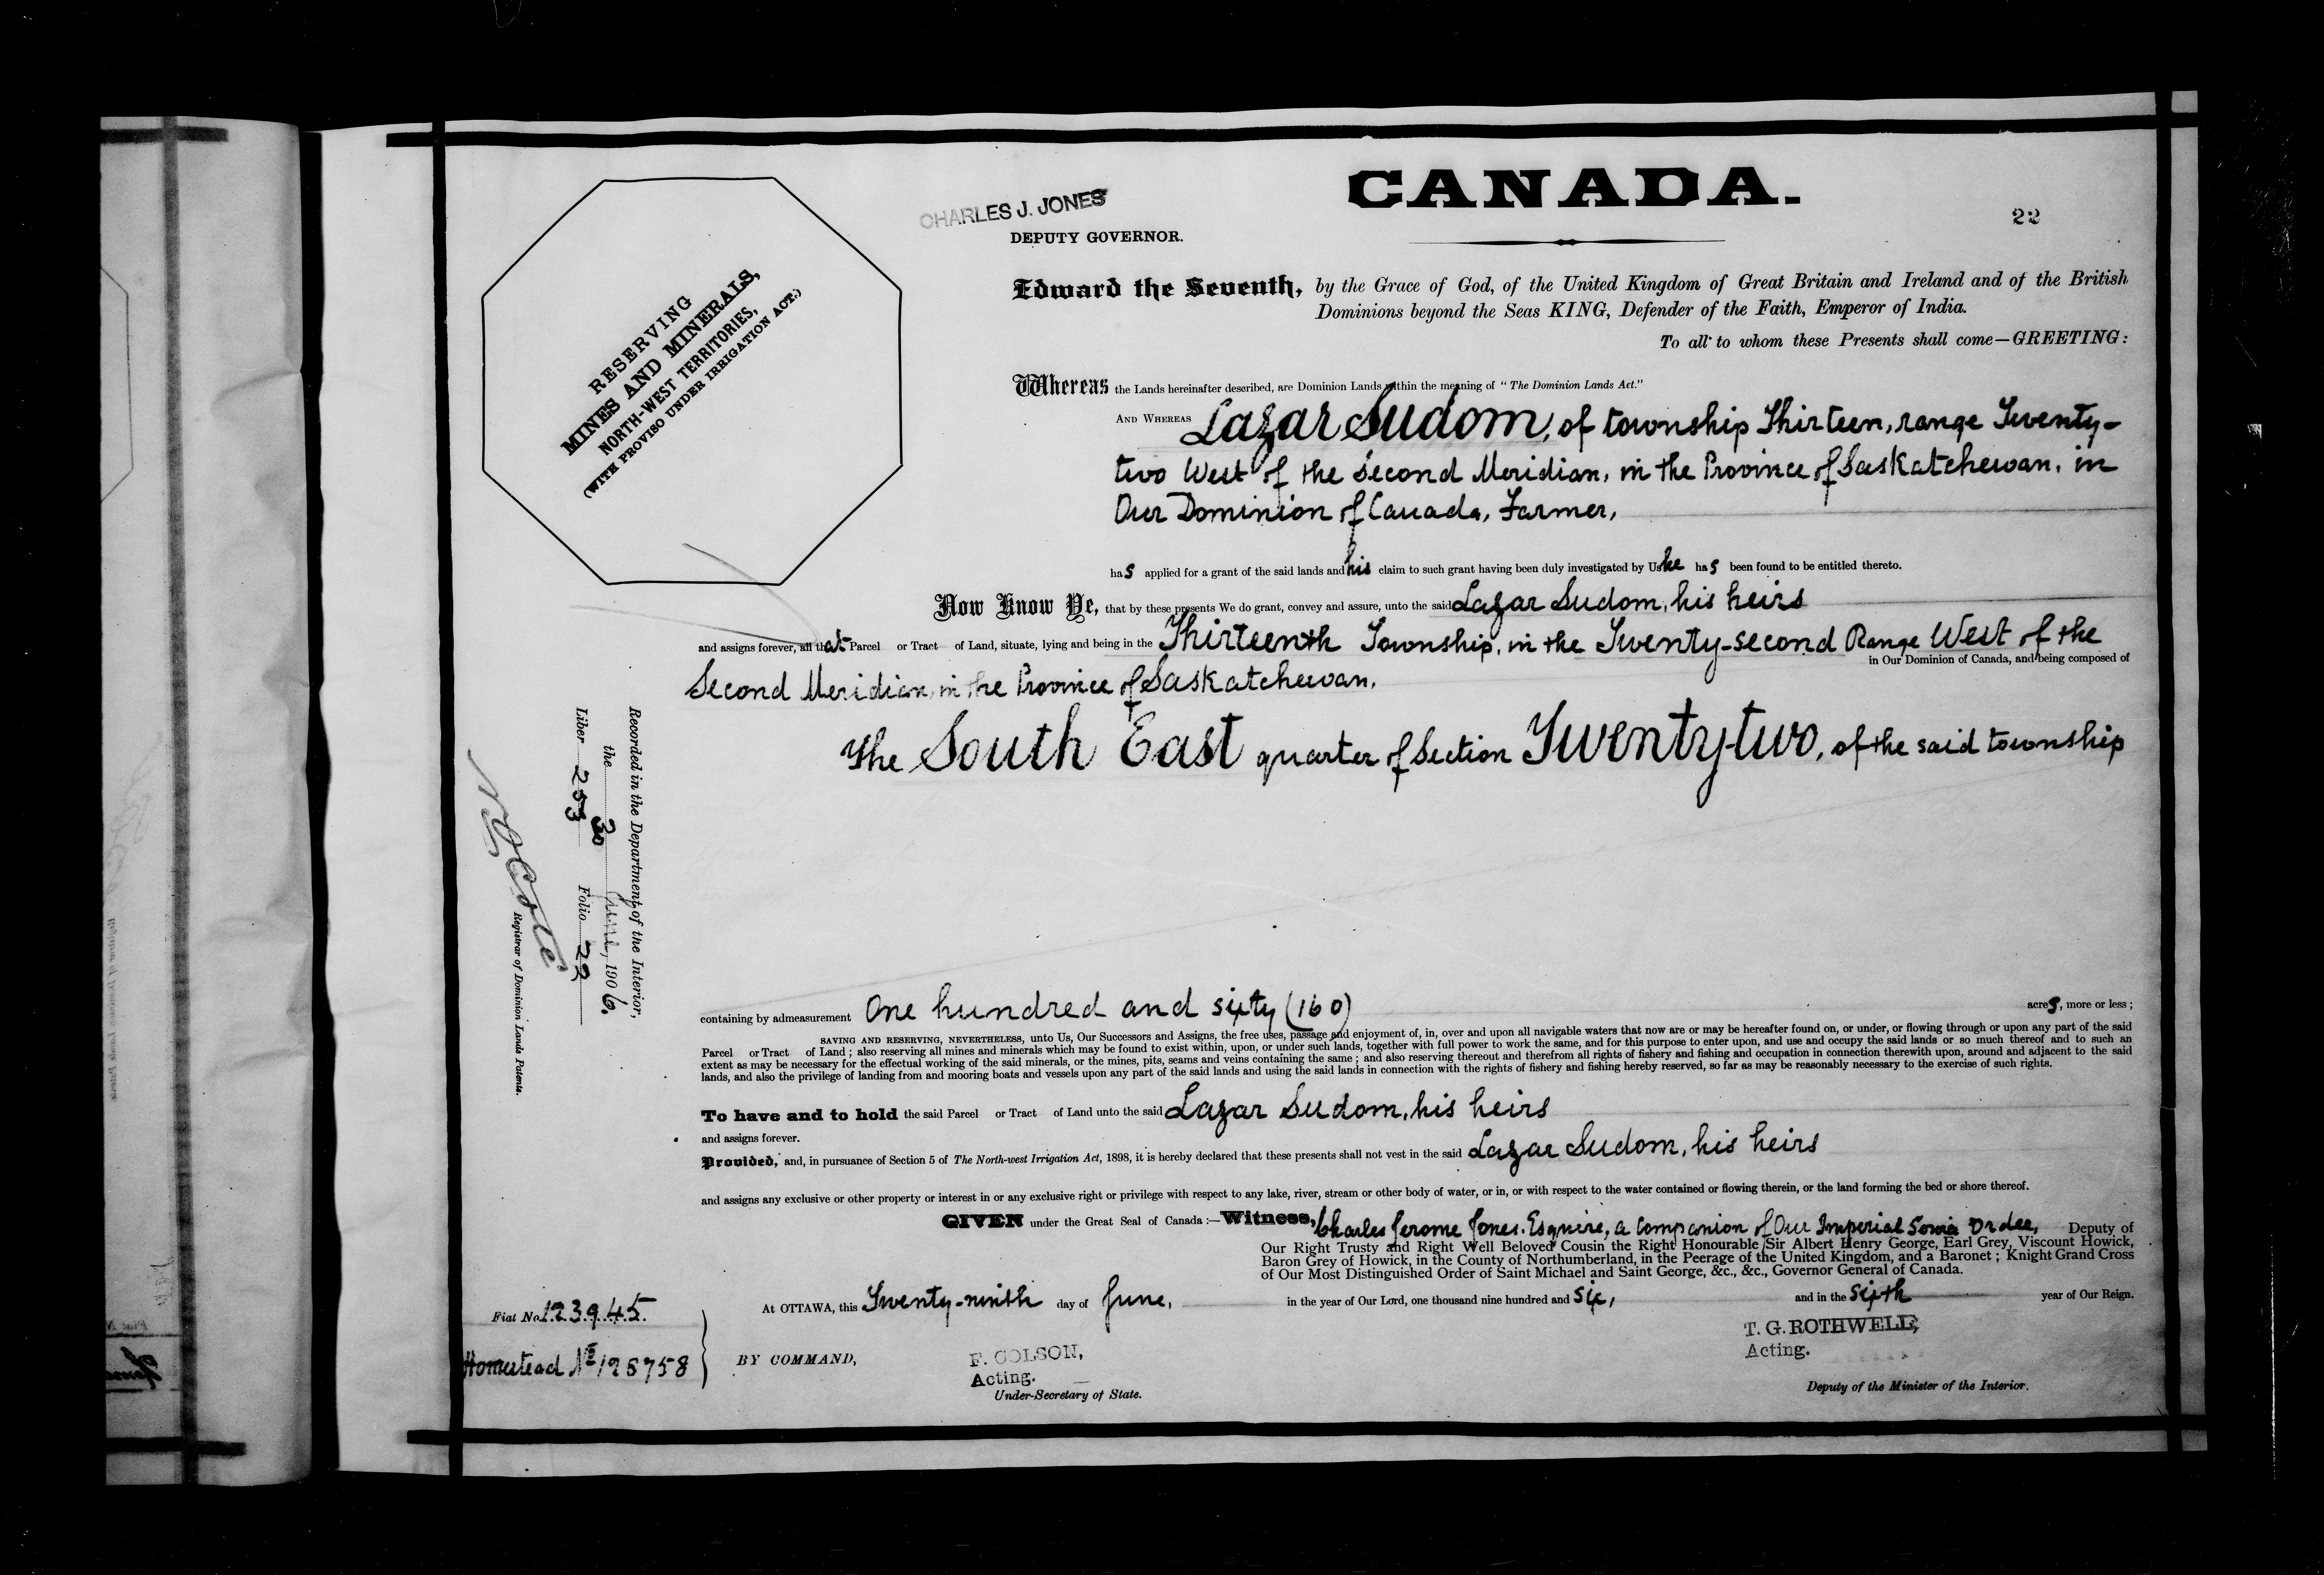 CANADA.
22
CHARLES J. JONES
DEPUTY GOVERNOR.
RESERVING
MINES AND MINERALS,
NORTH-WEST TERRITORIES,
(WITH PROVISO UNDER IRRIGATION ACT.)
Edward the Seventh, by the Grace of God, of the United Kingdom of Great Britain and Ireland and of the British
Dominions beyond the Seas KING, Defender of the Faith, Emperor of India.
To all to whom these Presents shall come—GREETING:
Whereas the Lands hereinafter described, are Dominion Lands within the meaning of "The Dominion Lands Act."
AND WHEREAS Lazar Sudom, of township Thirteen, range Twenty-
two West of the Second Meridian, in the Province of Saskatchewan, in
Our Dominion of Canada, Farmer,
has applied for a grant of the said lands and his claim to such grant having been duly investigated by Us he has been found to be entitled thereto.
Now Know Ye, that by these presents We do grant, convey and assure, unto the said Lazar Sudom, his heirs
and assigns forever, all that Parcel or Tract of Land, situate, lying and being in the Thirteenth Township, in the Twenty-second Range West of the
in Our Dominion of Canada, and being composed of
Second Meridian, in the Province of Saskatchewan.
The South East quarter of Section Twenty-two, of the said township
Recorded in the Department of the Interior,
the 30 June, 1906.
Liber 253 Folio 22
N O Coté
Registrar of Dominion Lands Patents.
containing by admeasurement One hundred and sixty (160) acres, more or less;
SAVING AND RESERVING, NEVERTHELESS, unto Us, Our Successors and Assigns, the free uses, passage and enjoyment of, in, over and upon all navigable waters that now are or may be hereafter found on, or under, or flowing through or upon any part of the said
Parcel or Tract of Land; also reserving all mines and minerals which may be found to exist within, upon, or under such lands, together with full power to work the same, and for this purpose to enter upon, and use and occupy the said lands or so much thereof and to such an
extent as may be necessary for the effectual working of the said minerals, or the mines, pits, seams and veins containing the same; and also reserving thereout and therefrom all rights of fishery and fishing and occupation in connection therewith upon, around and adjacent to the said
lands, and also the privilege of landing from and mooring boats and vessels upon any part of the said lands and using the said lands in connection with the rights of fishery and fishing hereby reserved, so far as may be reasonably necessary to the exercise of such rights.
To have and to hold the said Parcel or Tract of Land unto the said Lazar Sudom, his heirs
and assigns forever.
Provided, and, in pursuance of Section 5 of The North-west Irrigation Act, 1898, it is hereby declared that these presents shall not vest in the said Lazar Sudom, his heirs
and assigns any exclusive or other property or interest in or any exclusive right or privilege with respect to any lake, river, stream or other body of water, or in, or with respect to the water contained or flowing therein, or the land forming the bed or shore thereof.
GIVEN under the Great Seal of Canada:—Witness, Charles Jerome Jones, Esquire, a Companion of Our Imperial Order, Deputy of
Our Right Trusty and Right Well Beloved Cousin the Right Honourable Sir Albert Henry George, Earl Grey, Viscount Howick,
Baron Grey of Howick, in the County of Northumberland, in the Peerage of the United Kingdom, and a Baronet; Knight Grand Cross
of Our Most Distinguished Order of Saint Michael and Saint George, &c., &c., Governor General of Canada.
At OTTAWA, this Twenty-ninth day of June, in the year of Our Lord, one thousand nine hundred and six, and in the sixth year of Our Reign.
Fiat No. 123945.
Homestead No 125758
BY COMMAND,
F. COLSON,
Acting.
Under-Secretary of State.
T. G. ROTHWELL,
Acting.
Deputy of the Minister of the Interior.